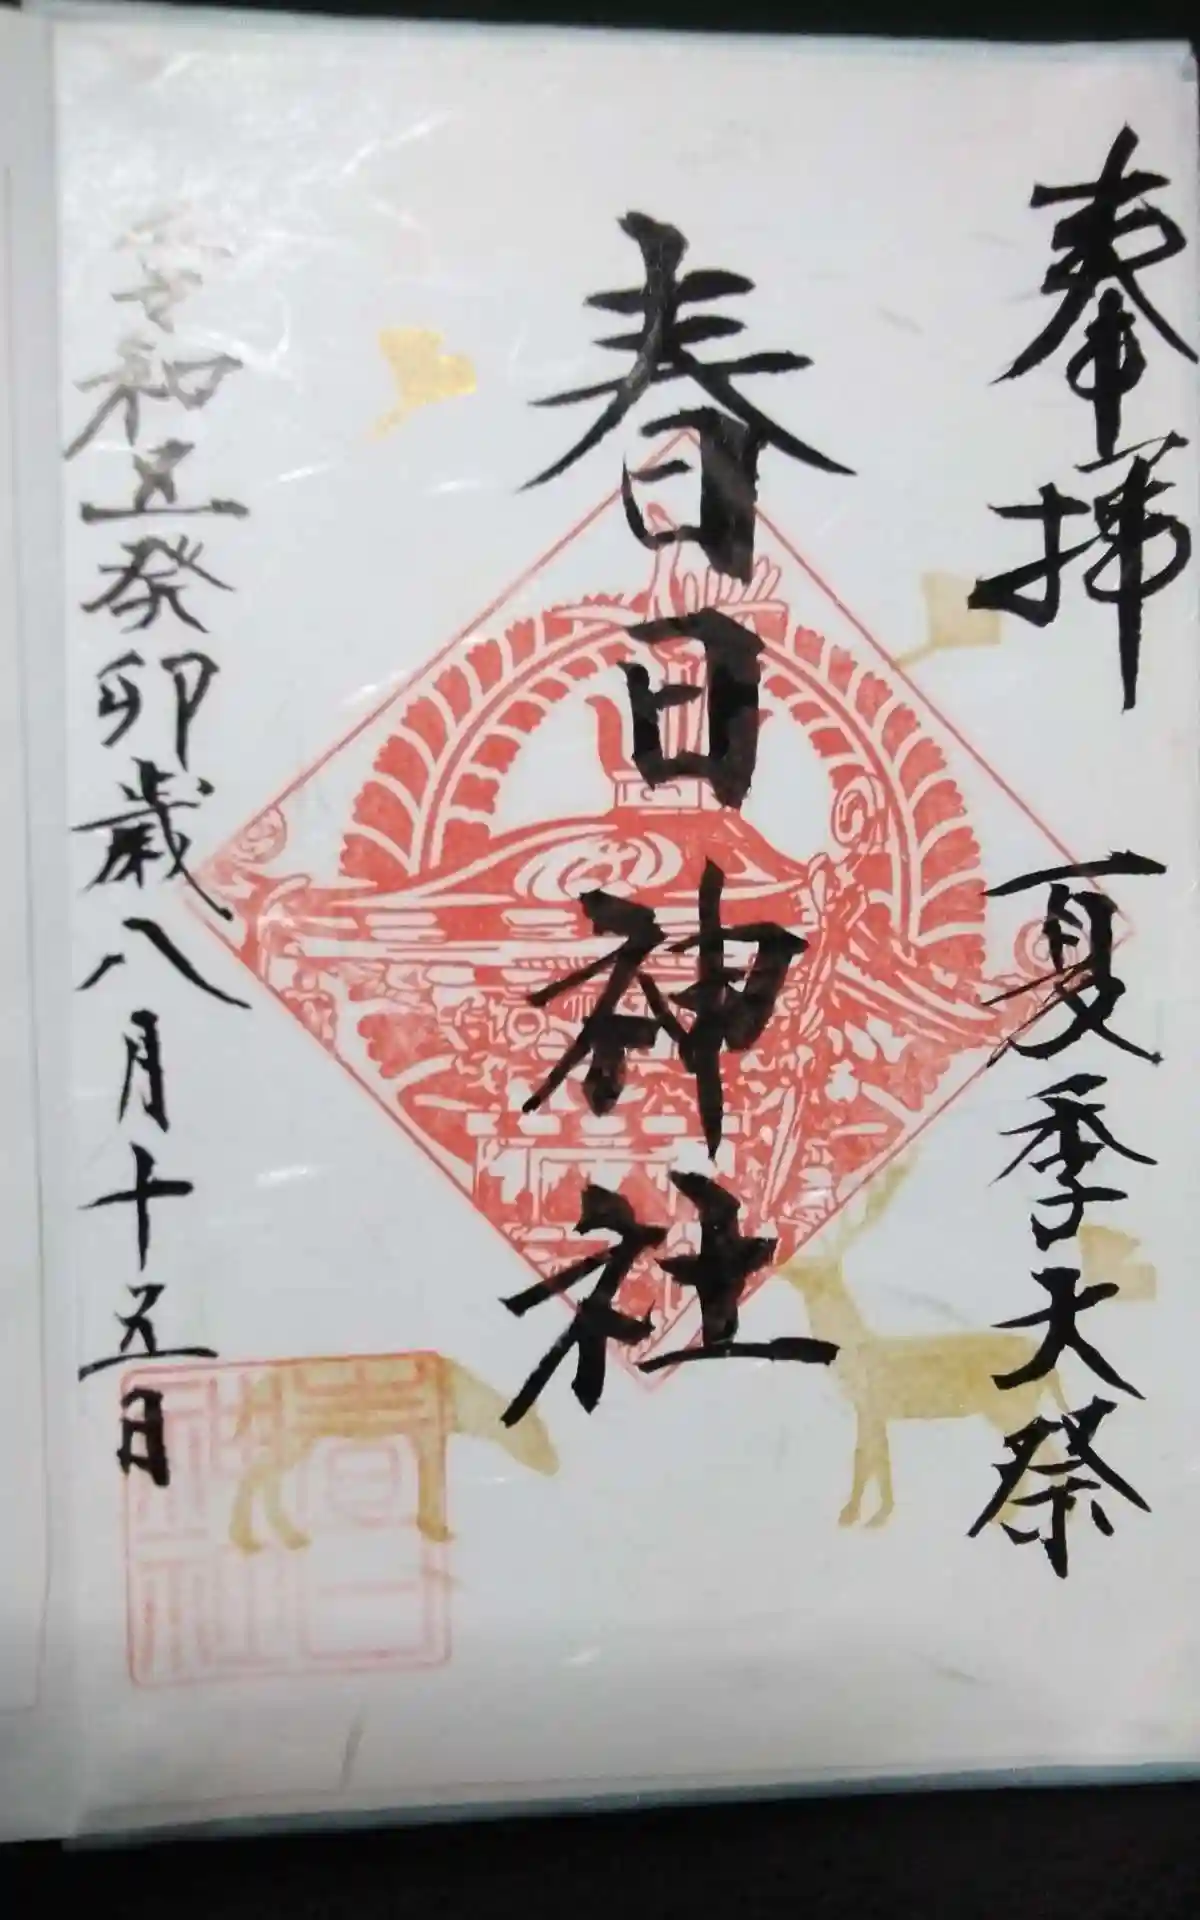 奉拝　夏季大祭
春日神社
令和五癸卯歳八月十五日
春日
神社